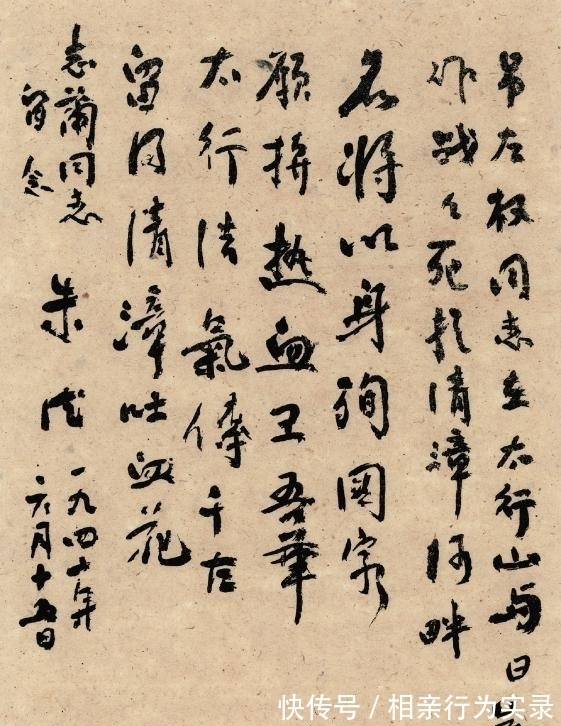 吊左权同志在太行山与日
作战々死於清漳河畔
名将以身殉國家
願拼热血卫吾華
太行浩氣傳千古
留得清漳吐血花
志蘭同志
留念
朱德
一九四年
六月十五日
快传号/相亲行为实录